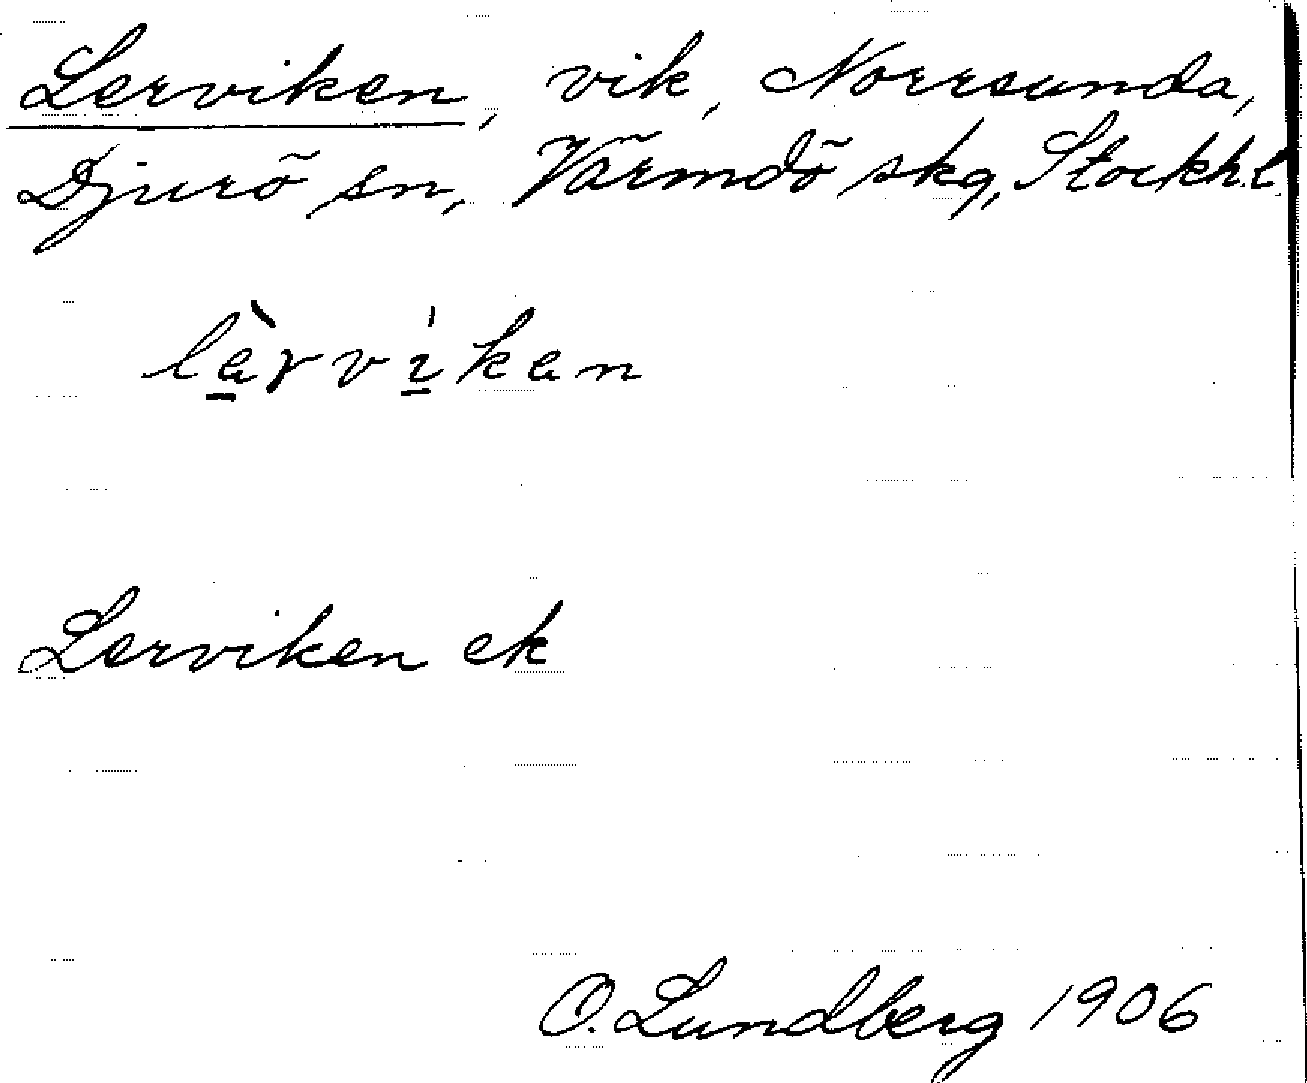 Lerviken, vik, Norrsunda,
Djurö sn, Värmdö skg, Stockh.l.
lèrvíken
Lerviken ek
O. Lundberg 1906